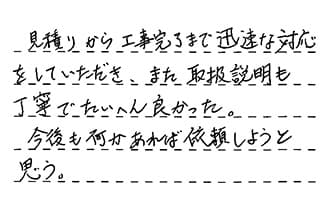 見積りから工事完了まで迅速な対応
をしていただき、また取扱説明も
丁寧でたいへん良かった。
今後も何かあれば依頼しようと
思う。